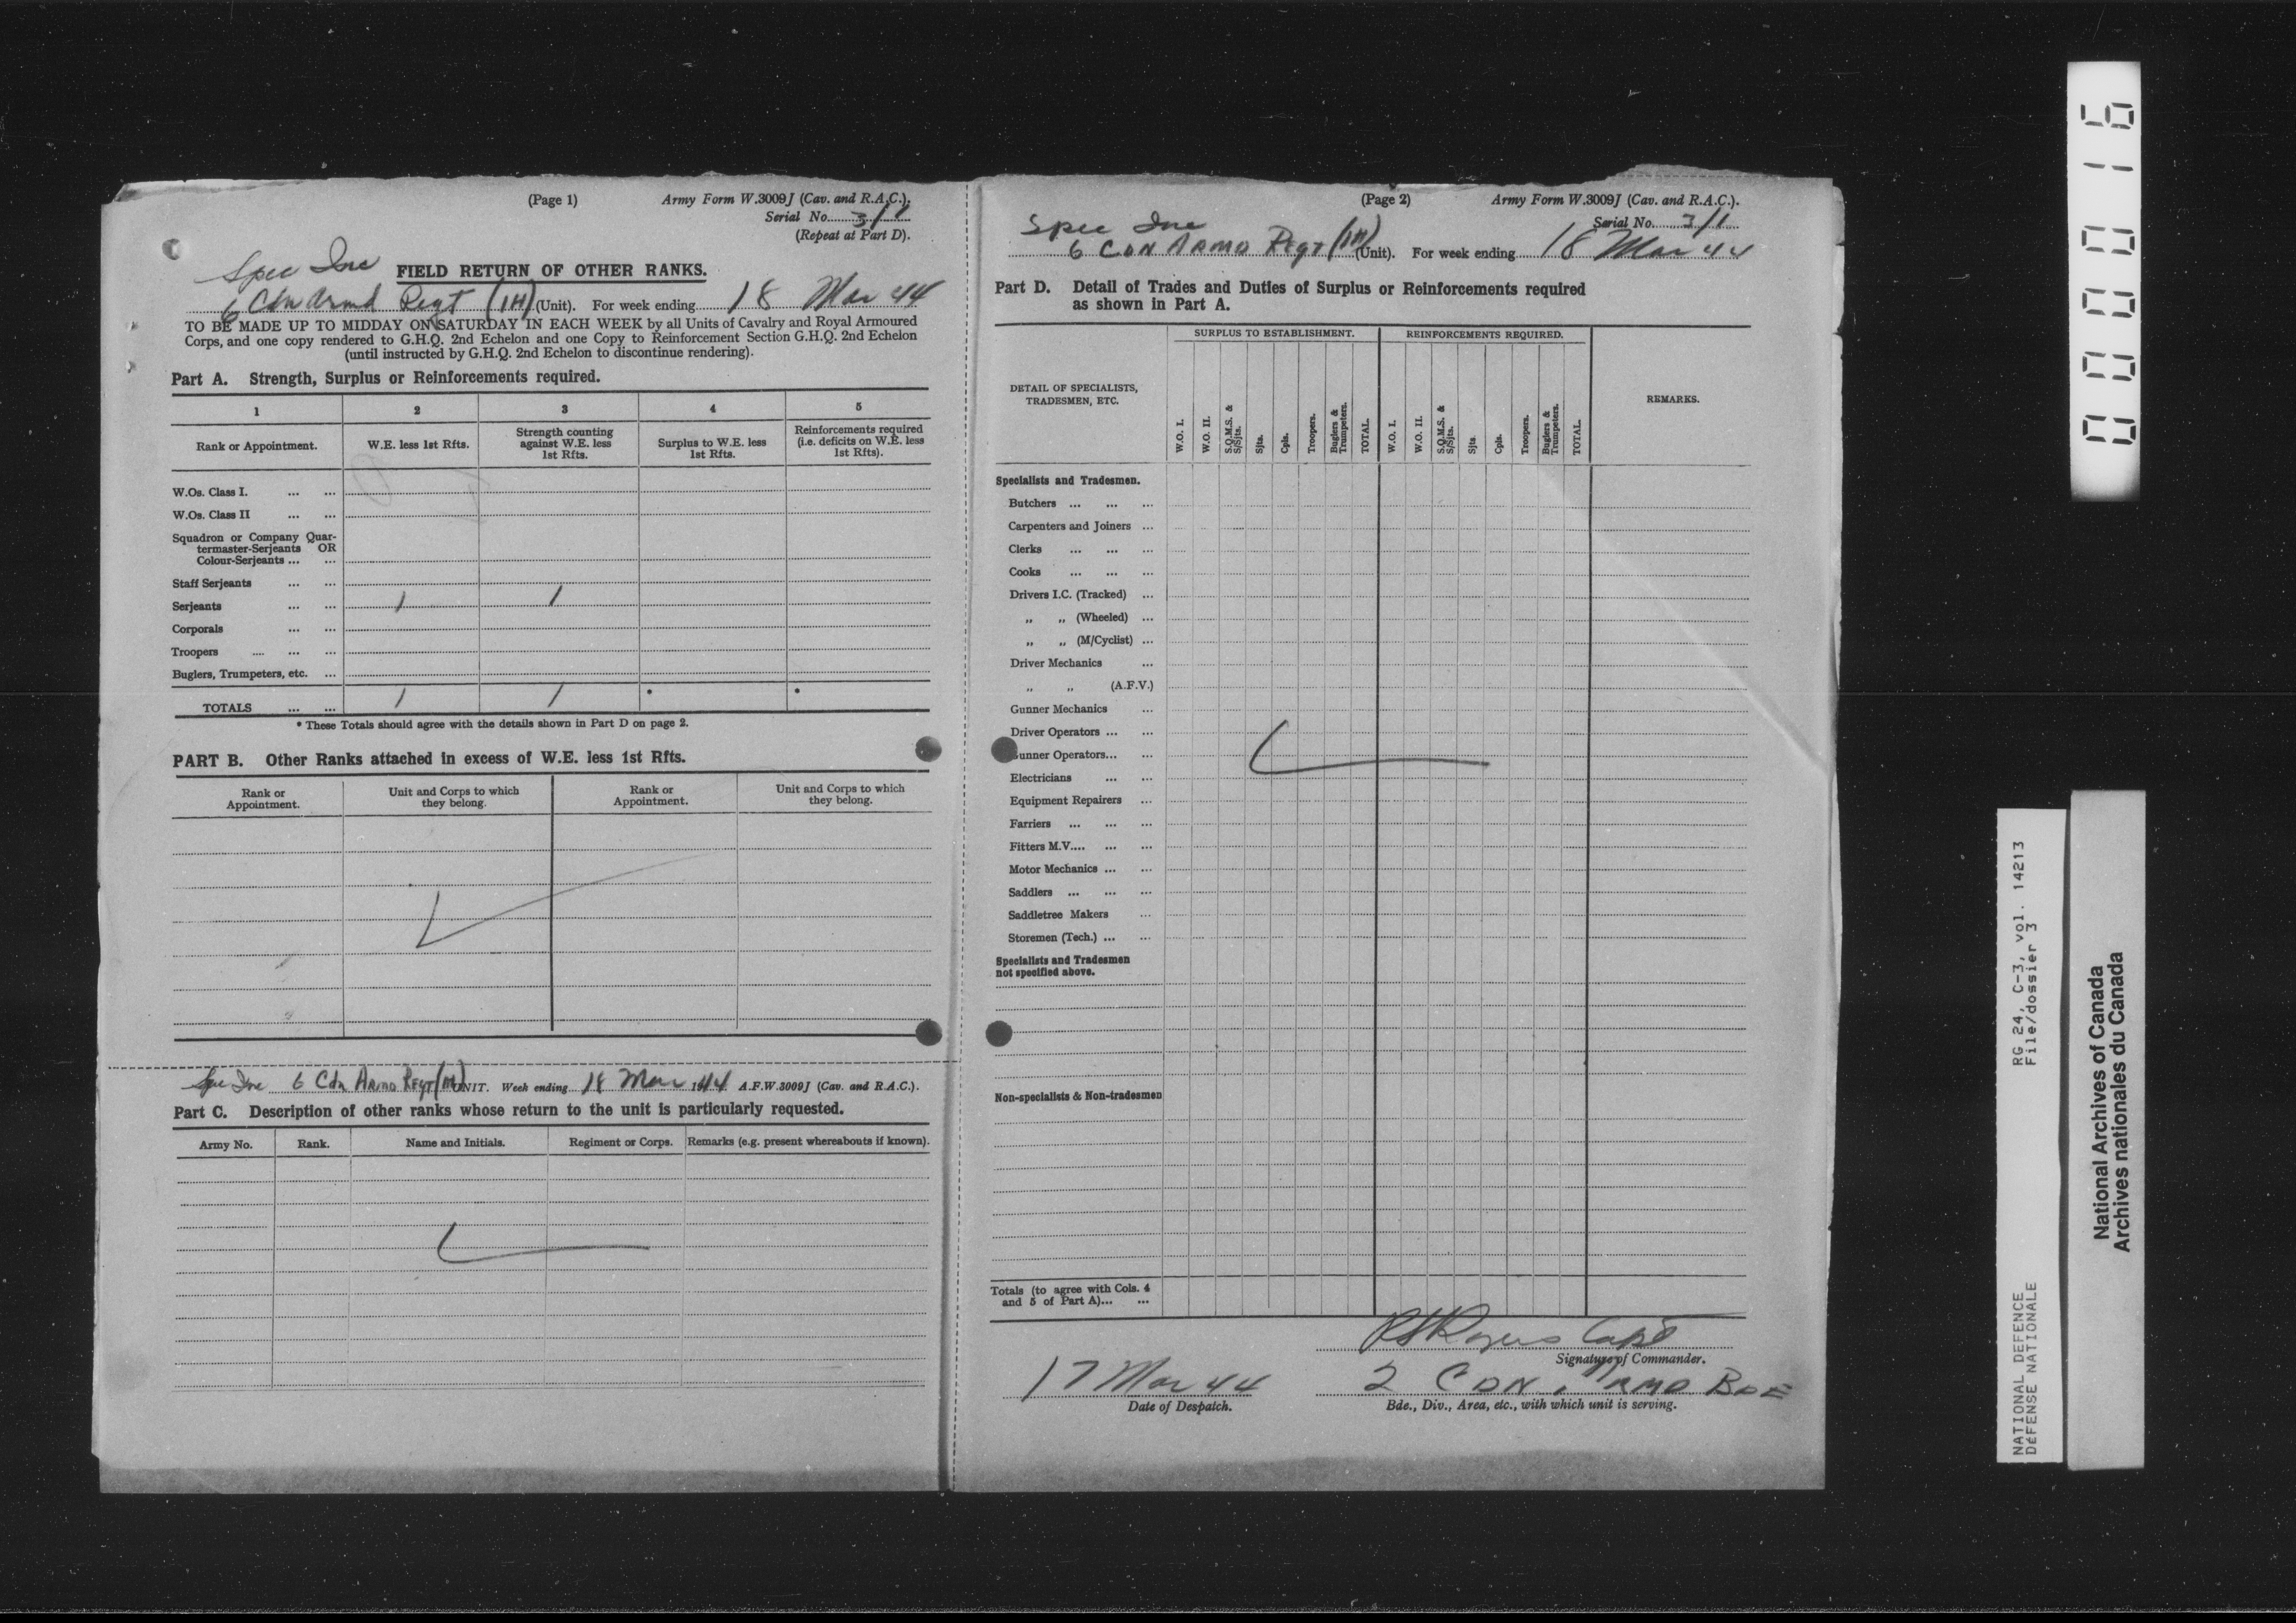 (Page 1) Army Form W.3009J (Cav. and R.A.C.).
Serial No. 3/1
(Repeat at Part D).
Spec Inc
FIELD RETURN OF OTHER RANKS.
6 Cdn Armd Regt (1H) (Unit). For week ending 18 Mar 44
TO BE MADE UP TO MIDDAY ON SATURDAY IN EACH WEEK by all Units of Cavalry and Royal Armoured
Corps, and one copy rendered to G.H.Q. 2nd Echelon and one Copy to Reinforcement Section G.H.Q. 2nd Echelon
(until instructed by G.H.Q. 2nd Echelon to discontinue rendering).
Part A. Strength, Surplus or Reinforcements required.
1 2 3 4 5
Rank or Appointment. W.E. less 1st Rfts. Strength counting against W.E. less 1st Rfts. Surplus to W.E. less 1st Rfts. Reinforcements required (i.e. deficits on W.E. less 1st Rfts).
W.Os. Class I. ... ...
W.Os. Class II ... ...
Squadron or Company Quar-
termaster-Serjeants OR
Colour-Serjeants ... ...
Staff Serjeants ... ...
Serjeants ... ... 1 1
Corporals ... ...
Troopers .... ... ...
Buglers, Trumpeters, etc. ...
TOTALS ... ... 1 1 * *
* These Totals should agree with the details shown in Part D on page 2.
PART B. Other Ranks attached in excess of W.E. less 1st Rfts.
Rank or Appointment. Unit and Corps to which they belong. Rank or Appointment. Unit and Corps to which they belong.
Spec Inc 6 Cdn Armd Regt (1H) UNIT. Week ending 18 Mar 1944 A.F.W.3009J (Cav. and R.A.C.).
Part C. Description of other ranks whose return to the unit is particularly requested.
Army No. Rank. Name and Initials. Regiment or Corps. Remarks (e.g. present whereabouts if known).
(Page 2) Army Form W.3009J (Cav. and R.A.C.).
Serial No. 3/1
Spec Inc
6 CDN ARMD Regt (1H) (Unit). For week ending 18 Mar 44
Part D. Detail of Trades and Duties of Surplus or Reinforcements required
as shown in Part A.
SURPLUS TO ESTABLISHMENT. REINFORCEMENTS REQUIRED.
DETAIL OF SPECIALISTS, TRADESMEN, ETC. REMARKS.
W.O. I. W.O. II. S.Q.M.S. & S/Sjts. Sjts. Cpls. Troopers. Buglers & Trumpeters. TOTAL. W.O. I. W.O. II. S.Q.M.S. & S/Sjts. Sjts. Cpls. Troopers. Buglers & Trumpeters. TOTAL.
Specialists and Tradesmen.
Butchers ... ... ...
Carpenters and Joiners ...
Clerks ... ... ...
Cooks ... ... ...
Drivers I.C. (Tracked) ...
„ „ (Wheeled) ...
„ „ (M/Cyclist) ...
Driver Mechanics ...
„ „ (A.F.V.)
Gunner Mechanics ...
Driver Operators ... ...
unner Operators... ...
Electricians ... ...
Equipment Repairers ...
Farriers ... ... ...
Fitters M.V.... ... ...
Motor Mechanics ... ...
Saddlers ... ... ...
Saddletree Makers ...
Storemen (Tech.) ... ...
Specialists and Tradesmen
not specified above.
Non-specialists & Non-tradesmen
Totals (to agree with Cols. 4
and 5 of Part A)... ...
Rogers Capt
Signature of Commander.
17 Mar 44 2 CDN ARMD BDE
Date of Despatch. Bde., Div., Area, etc., with which unit is serving.
000016
RG 24, C-3, vol. 14213
File/dossier 3
NATIONAL DEFENCE
DÉFENSE NATIONALE
National Archives of Canada
Archives nationales du Canada